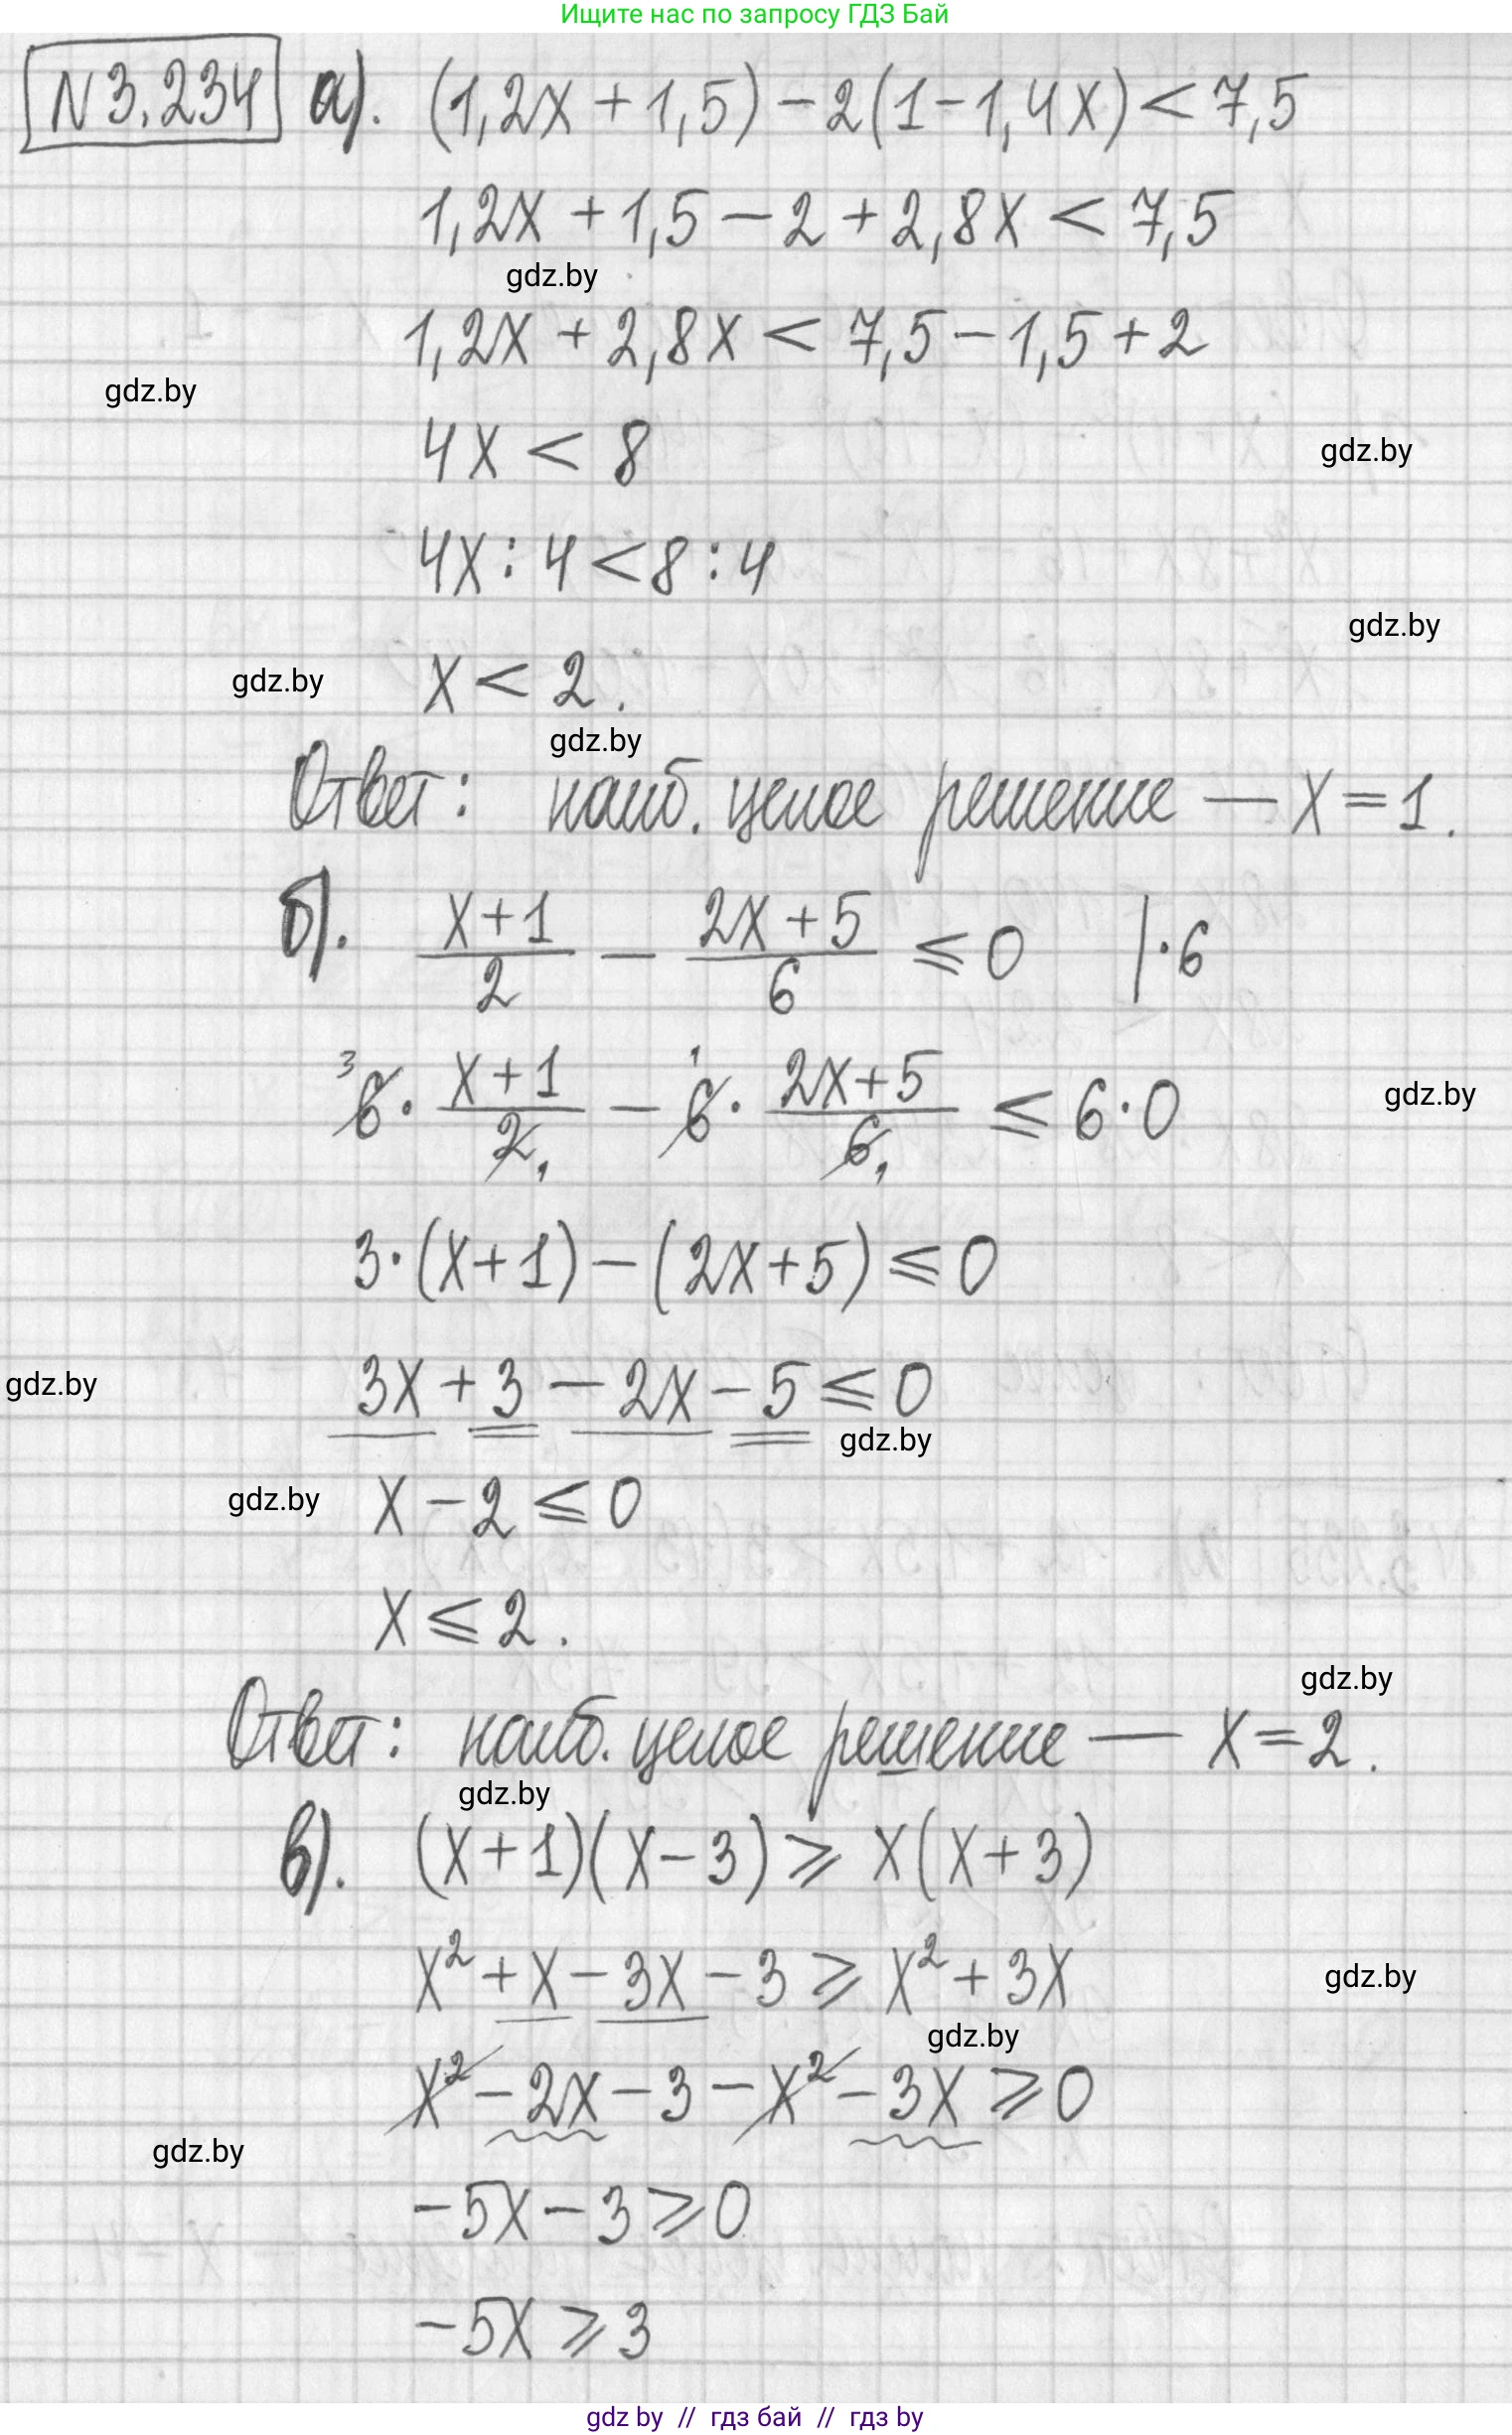 Ищите нас по запросу ГДЗ Бай
N 3.234 а). (1,2x + 1,5) − 2(1 − 1,4x) < 7,5
1,2x + 1,5 − 2 + 2,8x < 7,5
gdz.by
1,2x + 2,8x < 7,5 − 1,5 + 2
gdz.by
4x < 8
gdz.by
4x : 4 < 8 : 4
gdz.by
gdz.by x < 2.
gdz.by
Ответ: наиб. целое решение — x = 1.
б). (x+1)/2 − (2x+5)/6 ≤ 0 | · 6
³6 · (x+1)/2₁ − ¹6 · (2x+5)/6₁ ≤ 6 · 0
gdz.by
3 · (x+1) − (2x+5) ≤ 0
gdz.by 3x + 3 − 2x − 5 ≤ 0
gdz.by
gdz.by x − 2 ≤ 0
x ≤ 2.
gdz.by
Ответ: наиб. целое решение — x = 2.
gdz.by
в). (x+1)(x−3) ≥ x(x+3)
x² + x − 3x − 3 ≥ x² + 3x
gdz.by
gdz.by
x² − 2x − 3 − x² − 3x ≥ 0
gdz.by
−5x − 3 ≥ 0
−5x ≥ 3
gdz by // гдз бай // гдз by